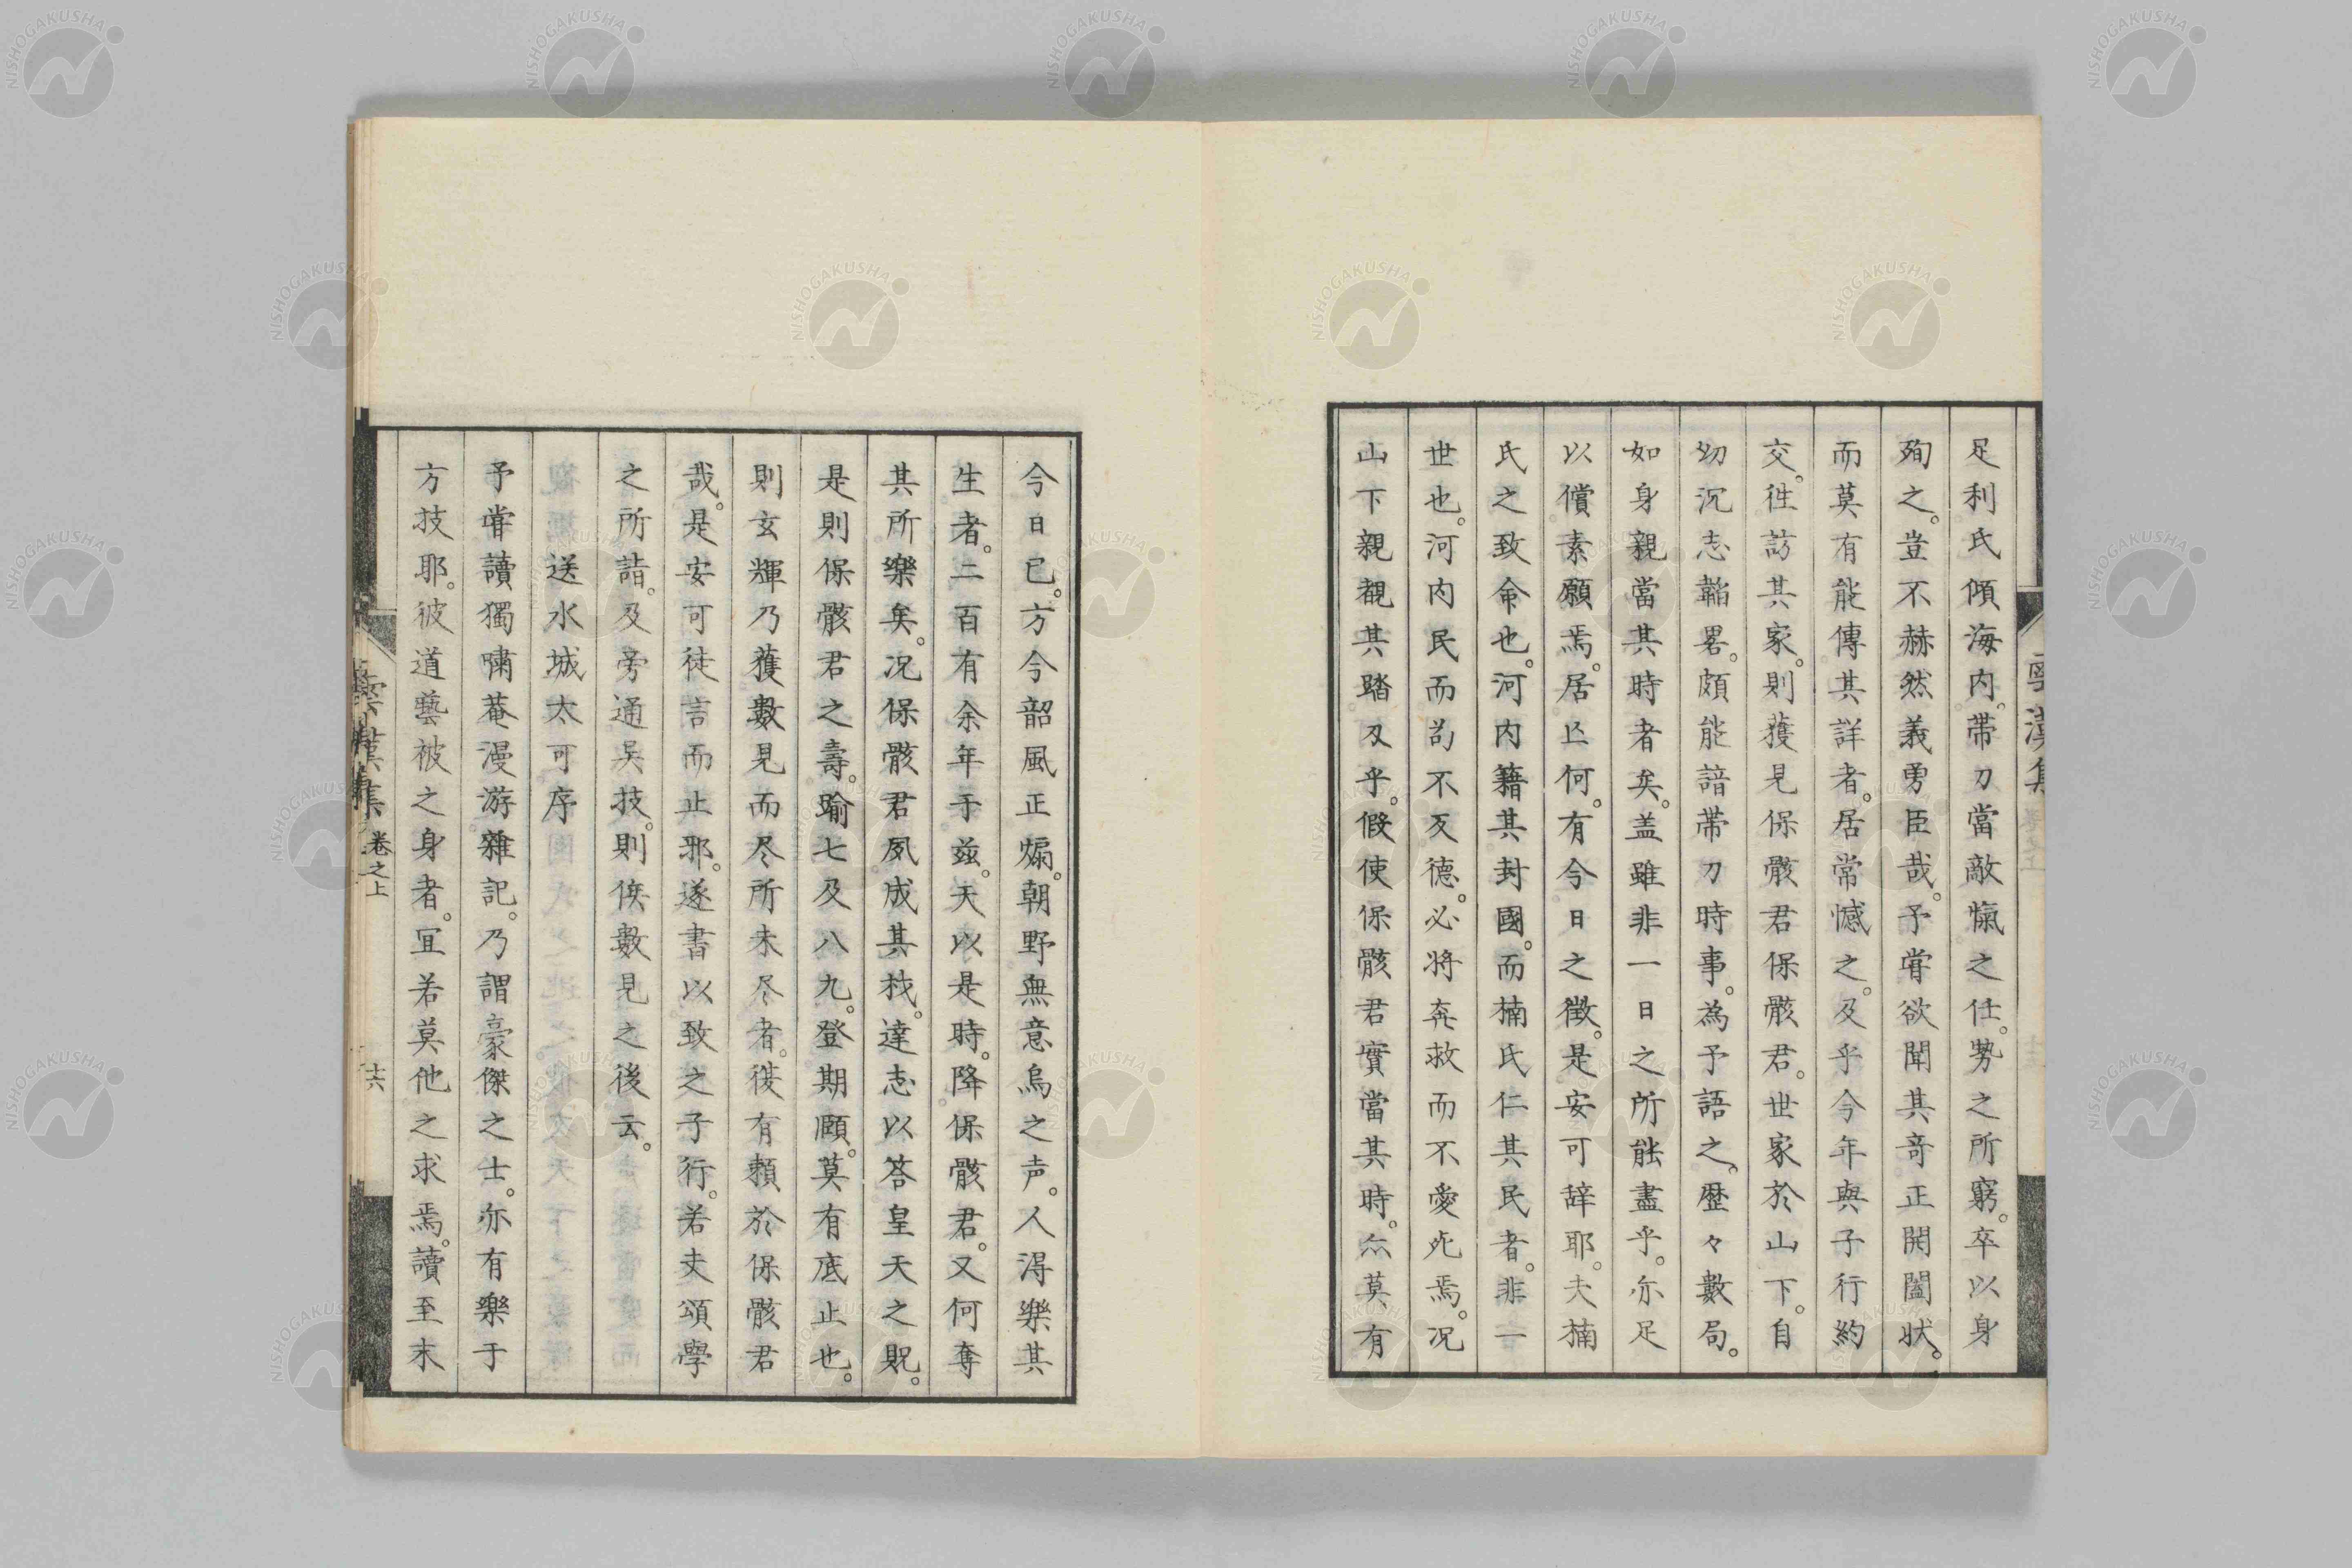 足利氏傾海内。帯刀當敵愾之任。勢之所窮。卒以身
殉之。豈不赫然義勇臣哉。予甞欲聞其奇正開闔状。
而莫有能傳其詳者。居常憾之。及乎今年與子行約
交。徃訪其家。則獲見保骸君保骸君。世家於山下。自
幼沉志韜畧。頗能諳帯刀時事。為予語之。歴々數局。
如身親當其時者矣。盖雖非一日之所能盡乎。亦足
以償素願焉。居亾何。有今日之徴。是安可辞耶。夫楠
氏之致命也。河内籍其封國。而楠氏仁其民者。非一
世也。河内民而苟不反德。必將奔救而不愛死焉。况
山下親覩其踏刄乎。假使保骸君實當其時。亦莫有
今日已。方今韶風正煽。朝野無意烏之声。人得樂其
生者。二百有余年于兹。天以是時。降保骸君。又何奪
其所樂矣。况保骸君夙成其材。達志以答皇天之貺。
是則保骸君之壽。踰七及八九。登期頤。莫有底止也。
則玄輝乃獲數見而尽所未尽者。僕有頼於保骸君
哉。是安可徒言而止邪。遂書以致之子行。若夫頌學
之所詣。及旁通吴技。則俟數見之後云。
送水城太可序
予甞讀獨嘯菴漫游雜記。乃謂豪傑之士。亦有樂于
方技耶。彼道藝被之身者。冝若莫他之求焉。讀至末
卷之上
十六
NISHOGAKUSHA